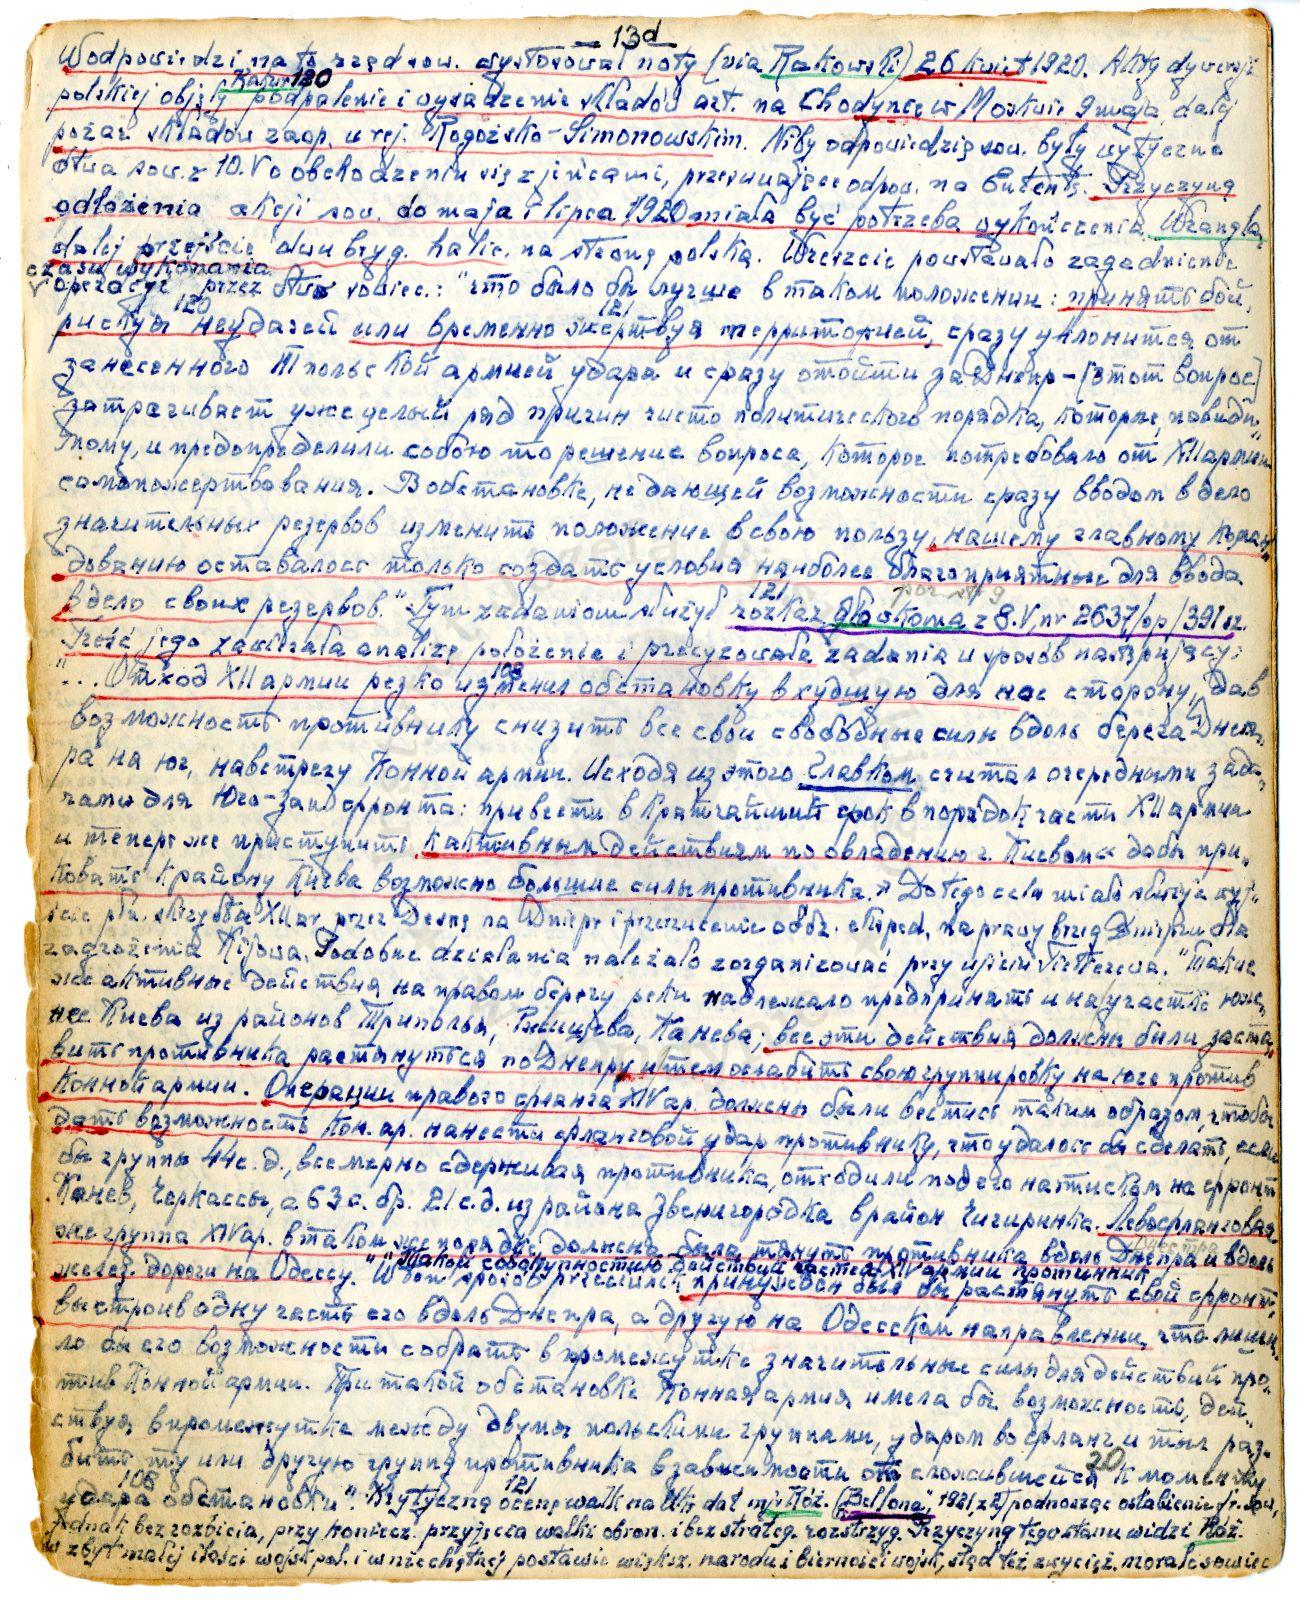 – 13d –
W odpowiedzi na to rząd sow. wystosował noty (via Rakowski) 26 kwiet 1920. Akty dywersji
Kakur. 120
polskiej objęły podpalenie i wysadzenie składów art. na Chodynce w Moskwie 9 maja, dalej
pożar składów zaop. w rej. Rogożsko-Simonowskim. Niby odpowiedzią sow. były wytyczne
dtwa sow. z 10.V o obchodzeniu się z jeńcami, przesuwające odpow. na Ententę. Przyczyną
odłożenia akcji sow. do maja i lipca 1920 miała być potrzeba wykończenia Wrangla,
dalej przejście dwu bryg. halic. na stronę polską. Wreszcie powstawało zagadnienie
czasu wykonania
operacyj przez dtwo sowiec.: "что было бы лучше в таком положении: принять бой,
120 121
рискуя неудачей или временно жертвуя территорией, сразу уклонится от
занесенного польской армией удара и сразу отойти за Днепр – [этот вопрос]
затрагивает уже целый ряд причин чисто политического порядка, которые, повиди-
мому, и предопределили собою то решение вопроса, которое потребовало от XII армии
самопожертвования. В обстановке, не дающей возможности сразу вводом в дело
значительных резервов изменить положение в свою пользу, нашему главному коман-
дованию оставалось только создать условия наиболее благоприятные для ввода
121
в дело своих резервов." Tym zadaniom służył rozkaz Gławkoma z 8.V, nr 2637/op/391 sz.
Treść jego zawierała analizę położenia i precyzowała zadania w sposób następujący:
108
"... Отход XII армии резко изменил обстановку в худшую для нас сторону, дав
возможность противнику снизить все свои свободные силы вдоль берега Днеп-
ра на юг, навстречу Конной армии. Исходя из этого Главком считал очередными зада-
чами для Юго-зап фронта: привести в кратчайший срок в порядок части XII армии
и теперь же приступить к активным действиям по овладению г. Киевом « дабы при-
ковать к району Киева возможно большие силы противника.» Do tego celu miało służyć wyj-
ście płn. skrzydła XII ar. przez Desnę na Dniepr i przerzucenie oddz. eksped. na prawy brzeg Dniepru dla
zagrożenia Kijowa. Podobne działania należało zorganizować przy ujściu Teterewa. "Такие
же активные действия на правом берегу реки надлежало предпринять и на участке юж-
нее Киева из районов Триполья, Ржищева, Канева; все эти действия должны были заста-
вить противника растянуться по Днепру и тем ослабить свою группировку на юге против
Конной армии. Операции правого фланга XIV ар. должны были вестись таким образом, чтобы
дать возможность Кон. ар. нанести фланговой удар противнику, что удалось бы сделать, если
бы группы 44 с. д., всемерно сдерживая противника, отходили под его натиском на фронт
Канев, Черкассы, а 63 с. бр. 21 с. д. из района Звенигородка в район Чигиринка. Левофланговая
же группа XIV ар. в таком же порядке должна была тянуть противника вдоль Днепра и вдоль
желез. дороги на Одессу." "Такой совокупностию действий частей XIV армии противник
W ten sposób przeciwnik принужден был бы растянуть свой фронт,
выстроив одну часть его вдоль Днепра, а другую на Одесском направлении, что лиши-
ло бы его возможности собрать в промежутке значительные силы для действий про-
тив Конной армии. При такой обстановке Конная армия имела бы возможность, дей-
ствуя в промежутке между двумя польскими группами, ударом во фланг и тыл раз-
20
бить ту или другую группу противника в зависимости от сложившейся к моменту
108 121
удара обстановки". Krytyczną ocenę walk na Ukr. dał mjr Róż. (Bellona", 1921, z 2) podnosząc osłabienie fr. sow.
jednak bez rozbicia, przy koniecz. przyjęcia walki obron. i bez strateg. rozstrzyg. Przyczynę tego stanu widzi Róż.
w zbyt małej ilości wojsk pol. i w niechętnej postawie większ. narodu i bierności wojsk, stąd też zwycięż. morale sowiec